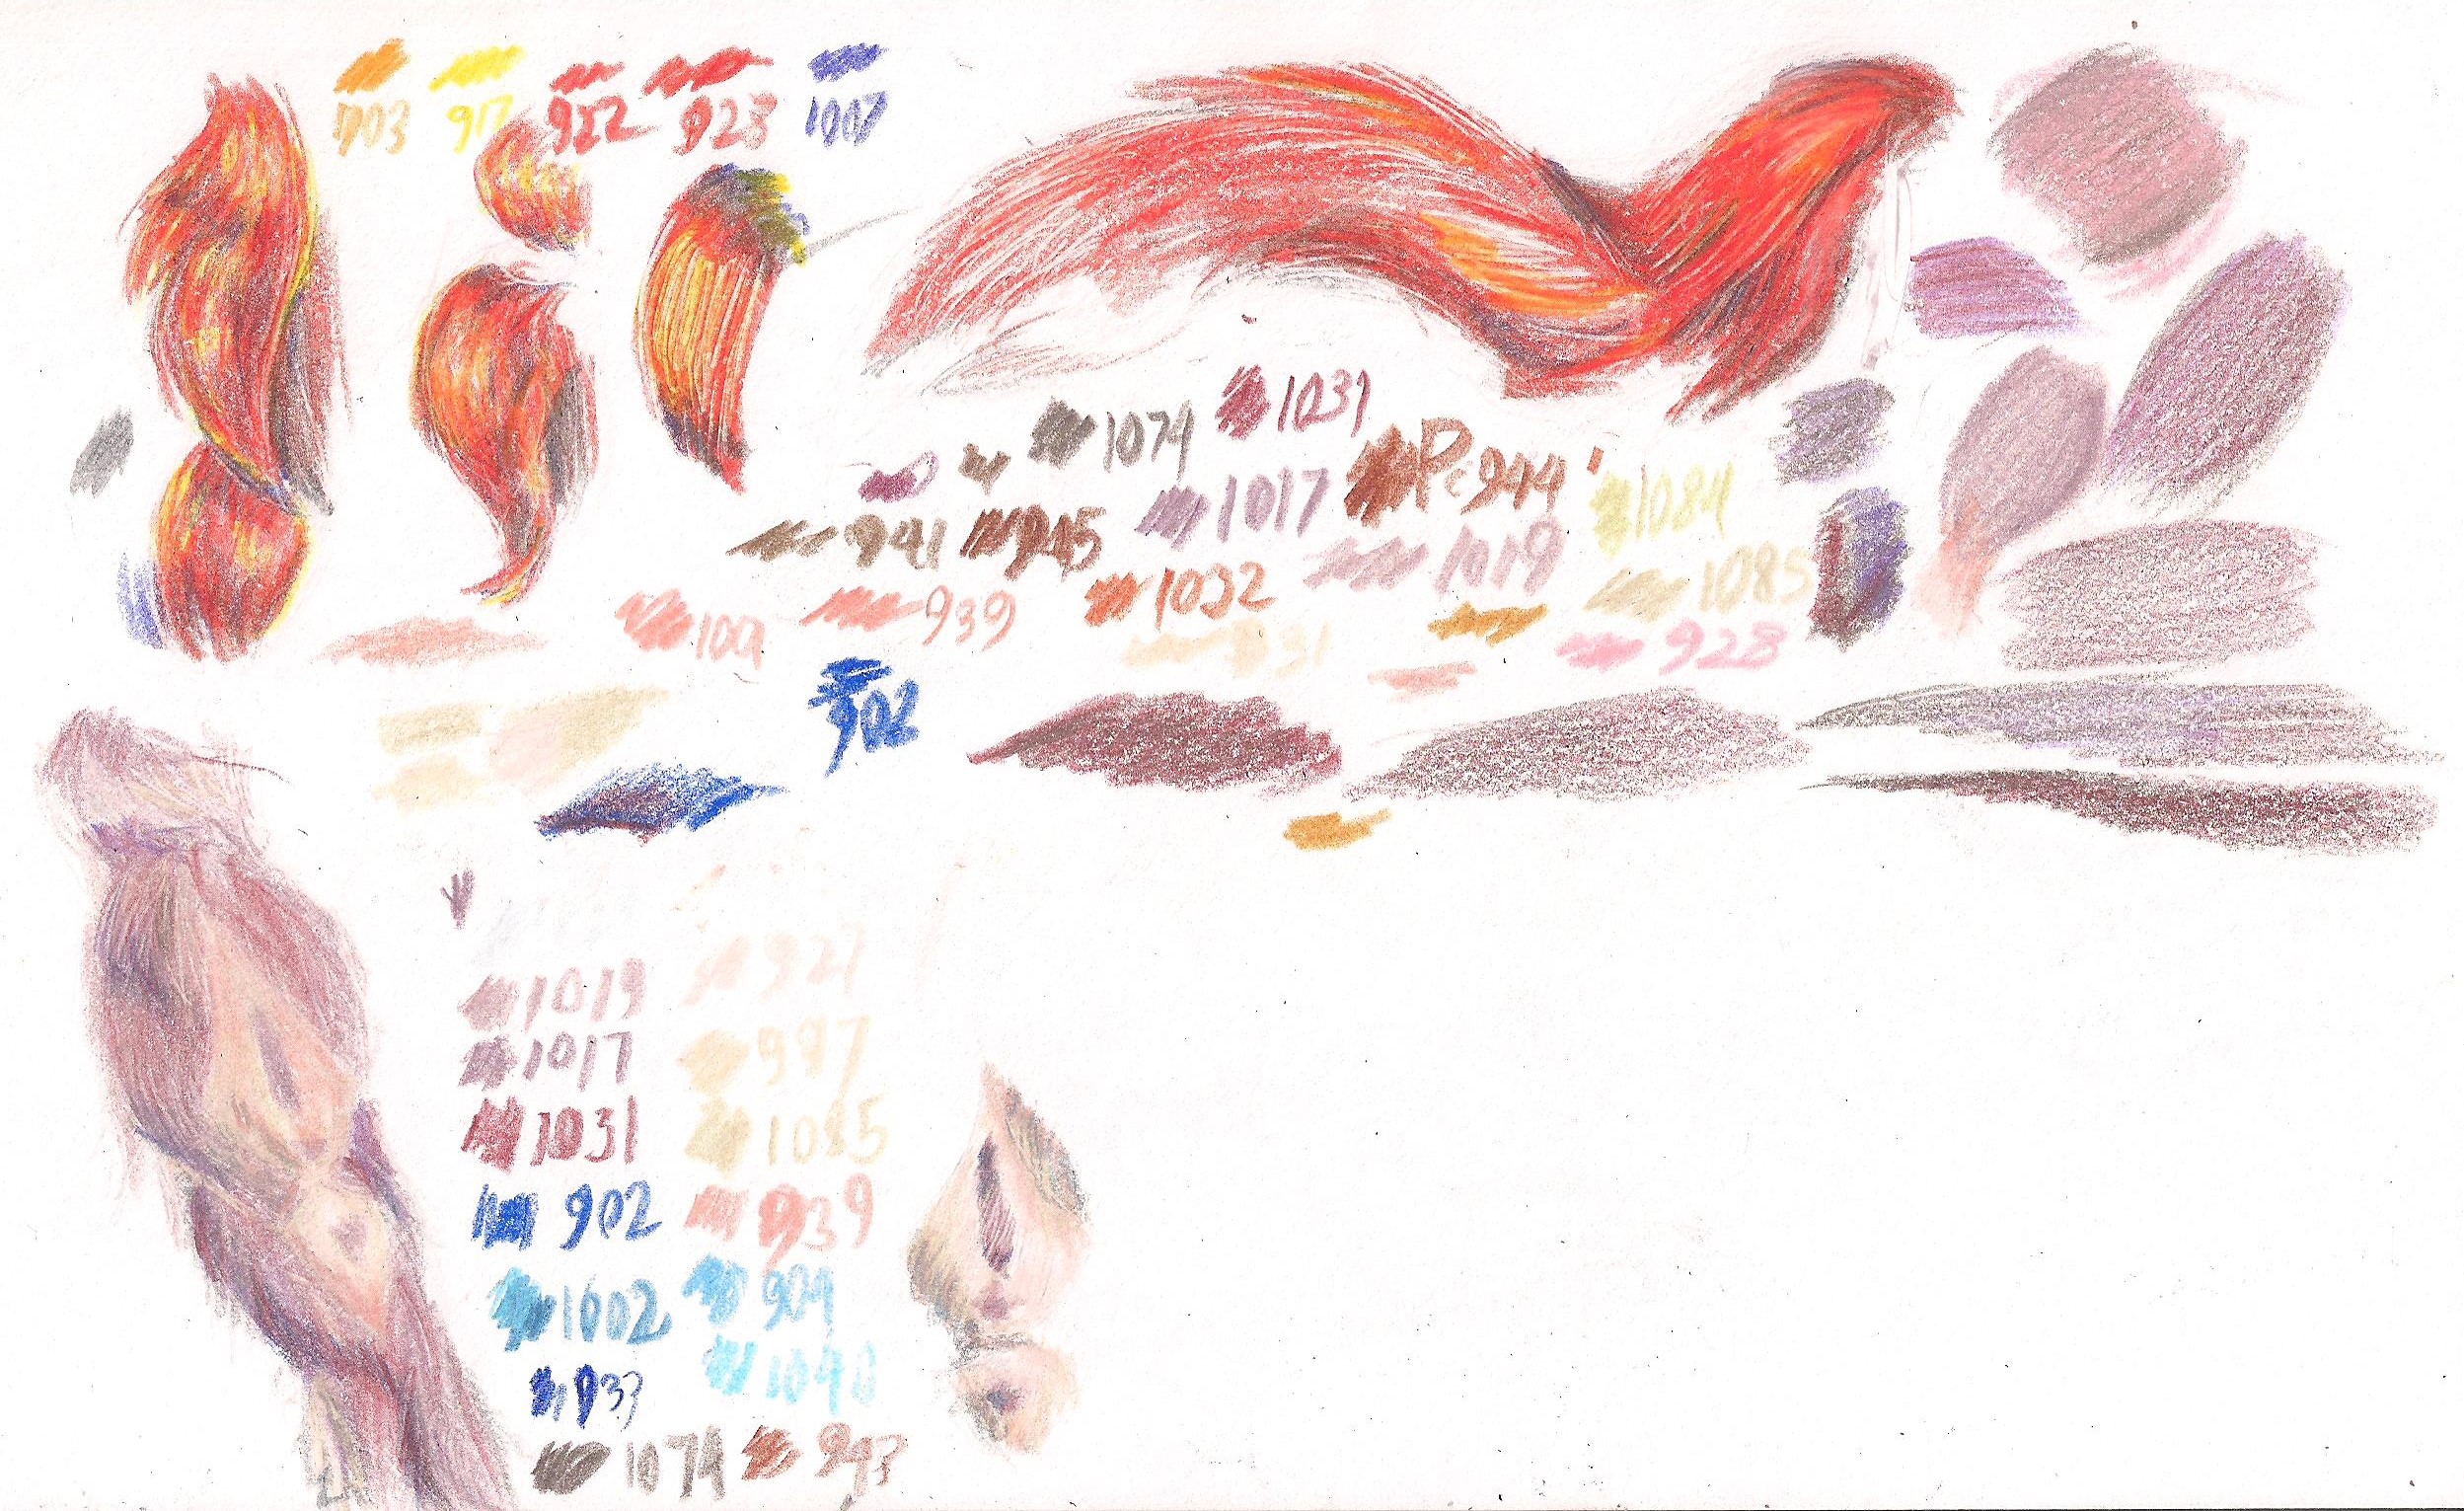 903 917 922 923 1007
1074 1031
1017 Pc944 1084
941 945 1019 1085
939 1032 931 928
902
1019 927
1017 997
1031 1085
902 939
1002 904
933 1040
1074 943